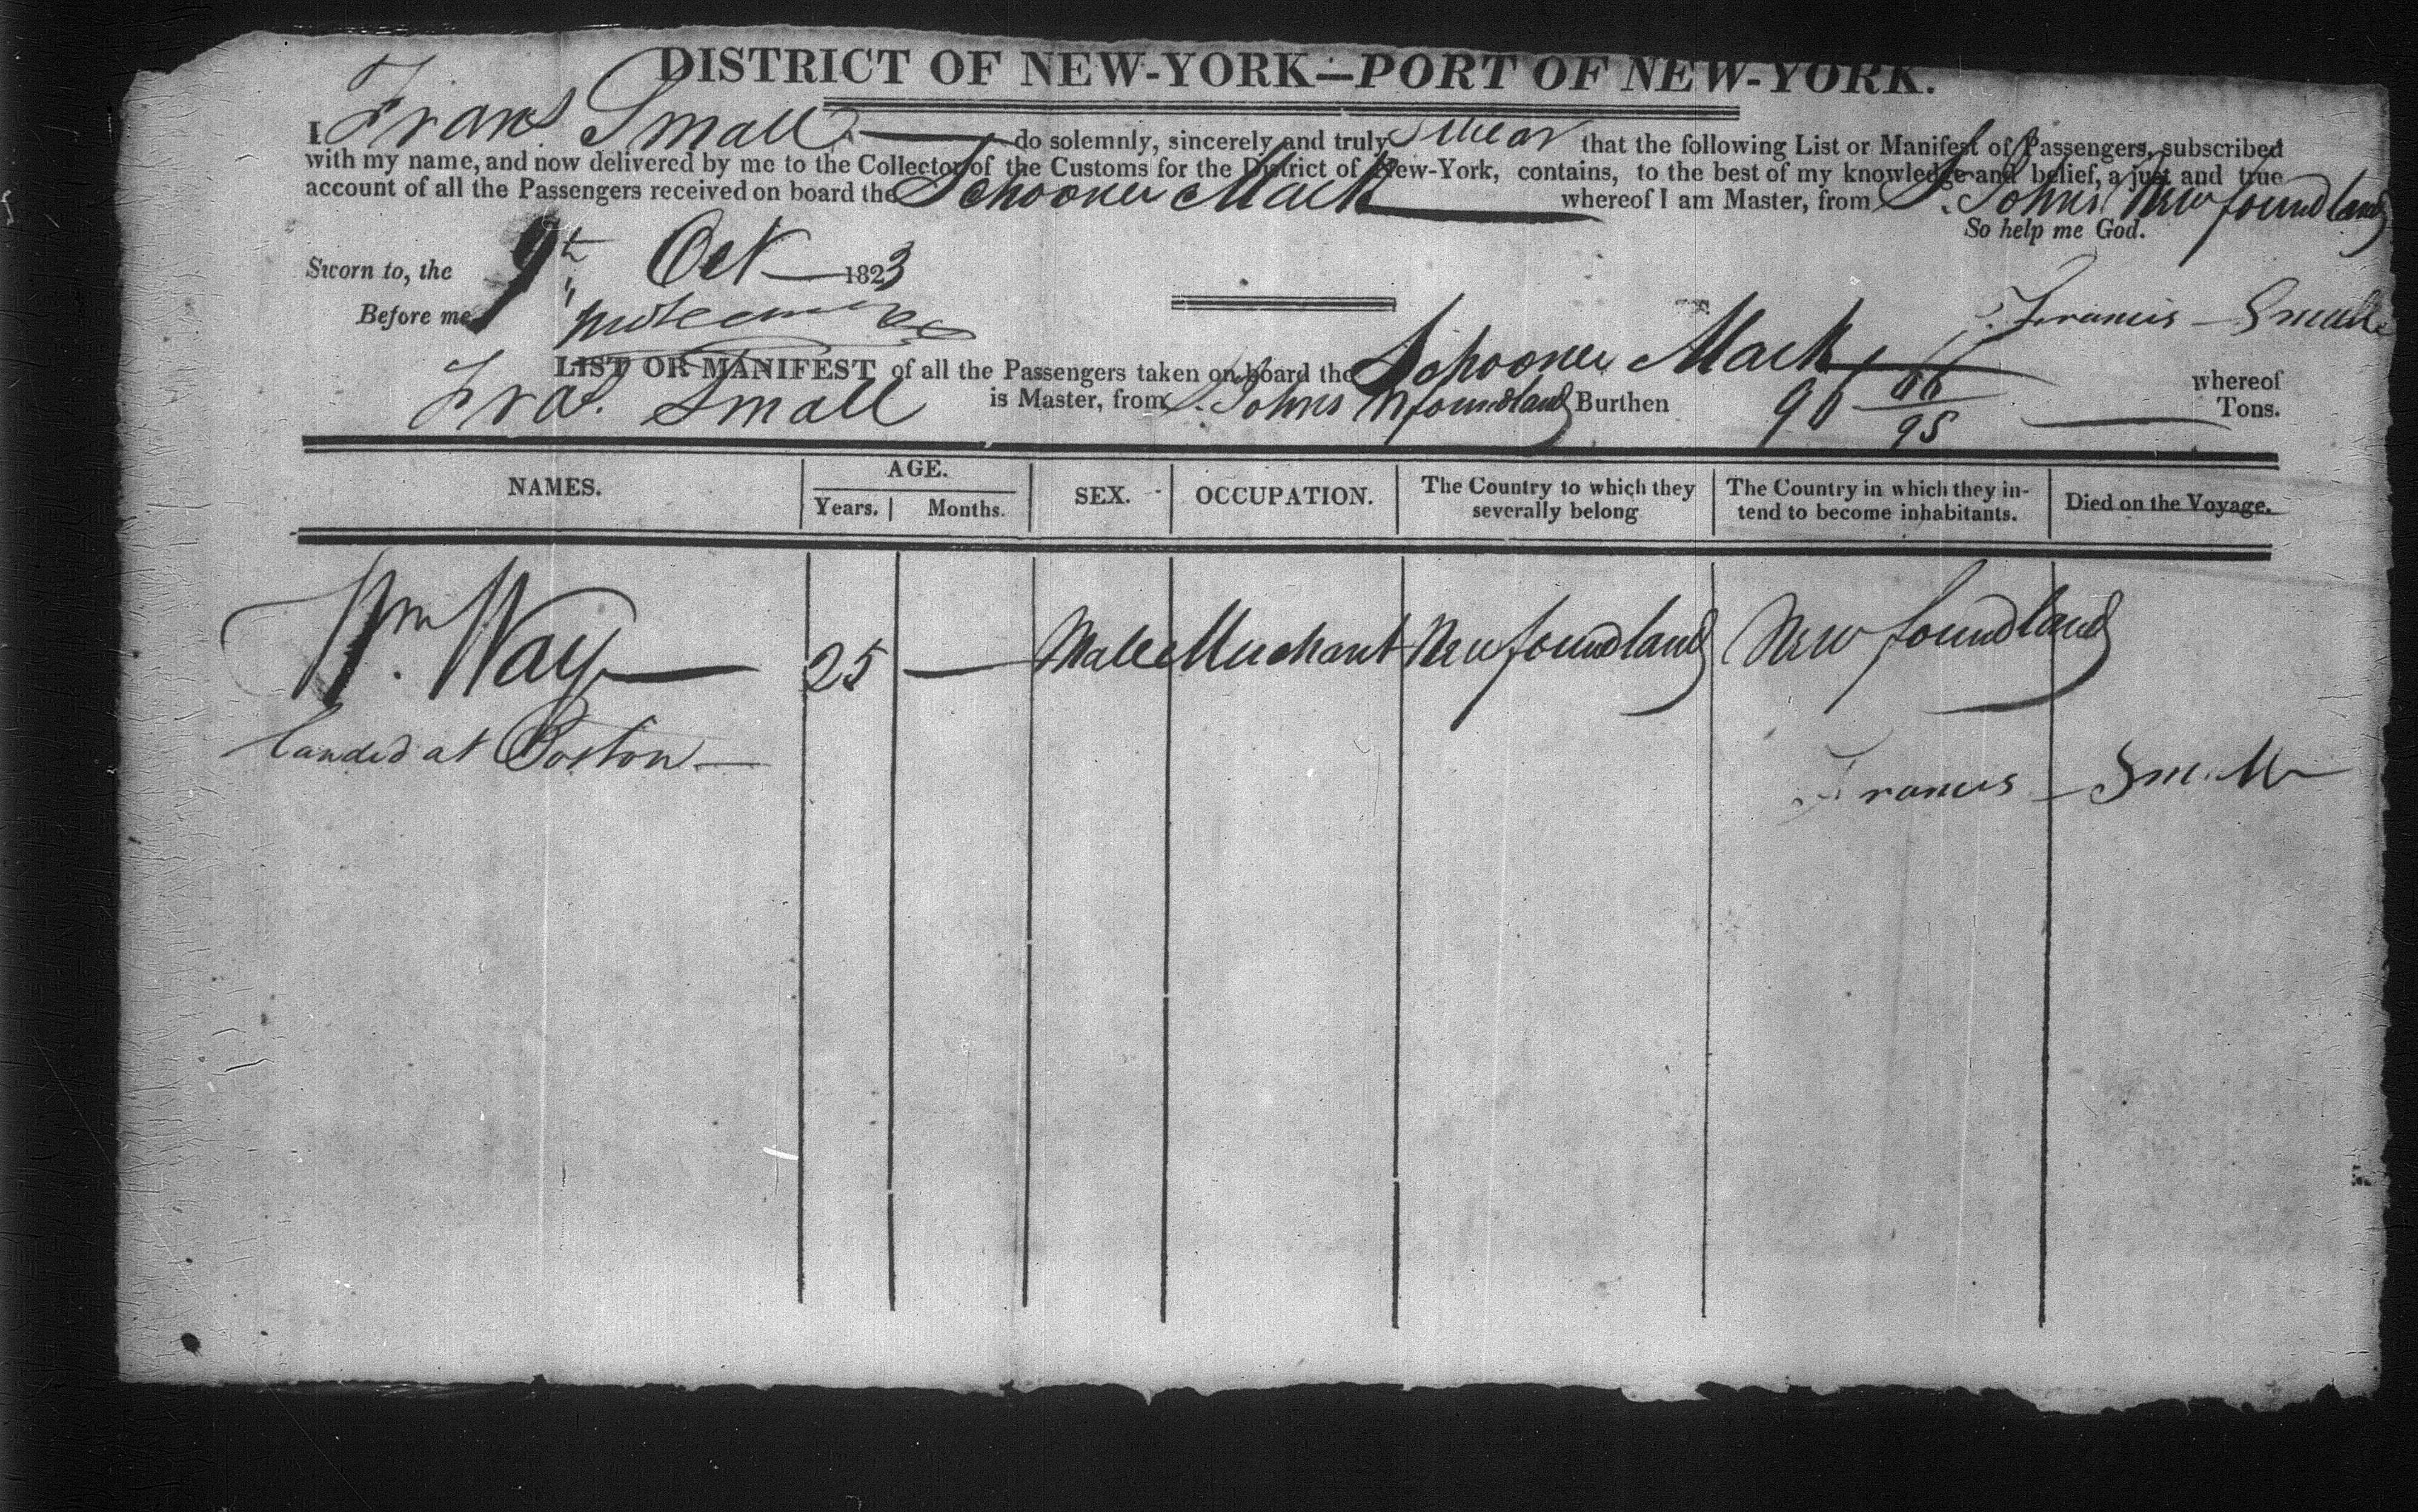 DISTRICT OF NEW-YORK—PORT OF NEW-YORK.
I Frans Small do solemnly, sincerely and truly Swear that the following List or Manifest of Passengers, subscribed
with my name, and now delivered by me to the Collector of the Customs for the District of New-York, contains, to the best of my knowledge and belief, a just and true
account of all the Passengers received on board the Schooner Mack whereof I am Master, from St. Johns Newfoundland
So help me God.
Sworn to, the 9th Oct 1823
Before me
Francis Small
LIST OR MANIFEST of all the Passengers taken on board the Schooner Mack whereof
Fras. Small is Master, from St. Johns Nfoundland Burthen 96 66/95 Tons.
NAMES. AGE. SEX. OCCUPATION. The Country to which they severally belong The Country in which they intend to become inhabitants. Died on the Voyage.
Years. Months.
Wm. Way 25 — Male Merchant Newfoundland Newfoundland
landed at Boston
Francis Small